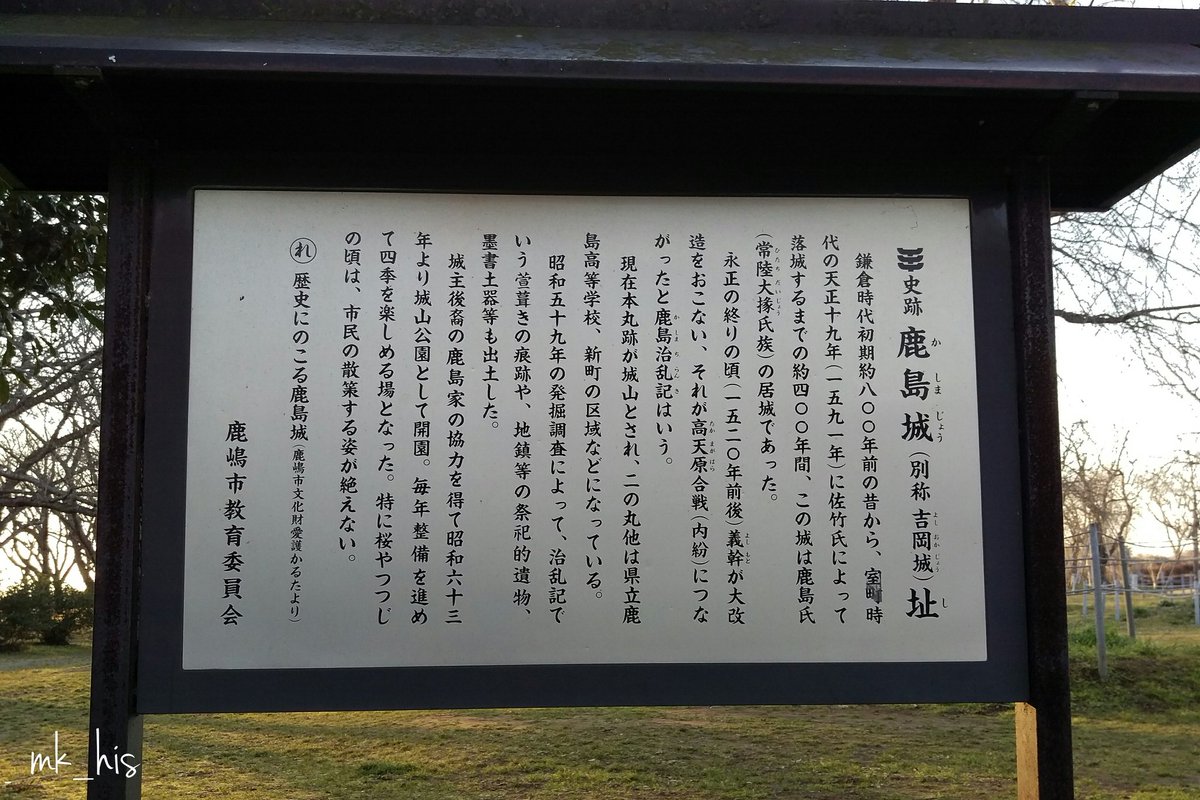 史跡 鹿島城(別称 吉岡城)址
か しま じょう よし おか じょう し
鎌倉時代初期約八〇〇年前の昔から、室町時
代の天正十九年(一五九一年)に佐竹氏によって
落城するまでの約四〇〇年間、この城は鹿島氏
(常陸大掾氏族)の居城であった。
ひたち だいじょう
永正の終りの頃(一五二〇年前後)義幹が大改
よし もと
造をおこない、それが高天原合戦(内紛)につな
たか まが はら
がったと鹿島治乱記はいう。
か しま ち らん き
現在本丸跡が城山とされ、二の丸他は県立鹿
島高等学校、新町の区域などになっている。
昭和五十九年の発掘調査によって、治乱記で
いう萱葺きの痕跡や、地鎮等の祭祀的遺物、
墨書土器等も出土した。
城主後裔の鹿島家の協力を得て昭和六十三
年より城山公園として開園。毎年整備を進め
て四季を楽しめる場となった。特に桜やつつじ
の頃は、市民の散策する姿が絶えない。
れ 歴史にのこる鹿島城(鹿嶋市文化財愛護かるたより)
鹿嶋市教育委員会
mk_his